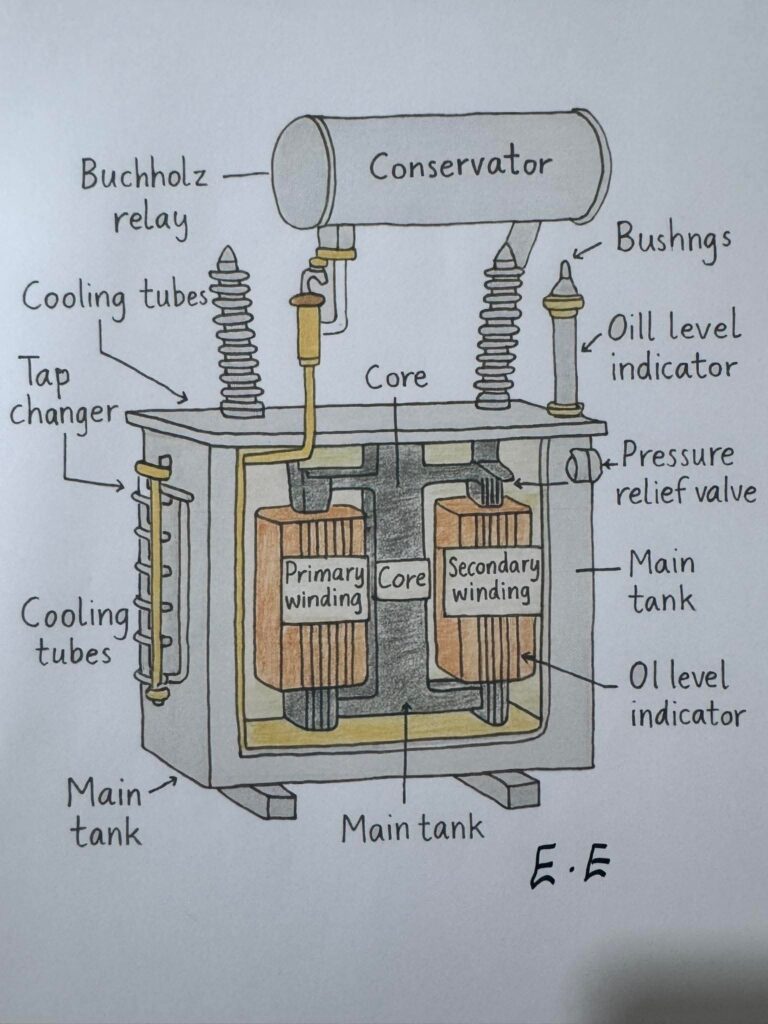 Conservator
Buchholz
relay
Bushngs
Cooling tubes
Oill level
indicator
Tap
changer
Core
Pressure
relief valve
Primary
winding
Core
Secondary
winding
Main
tank
Cooling
tubes
Ol level
indicator
Main
tank
Main tank
E.E